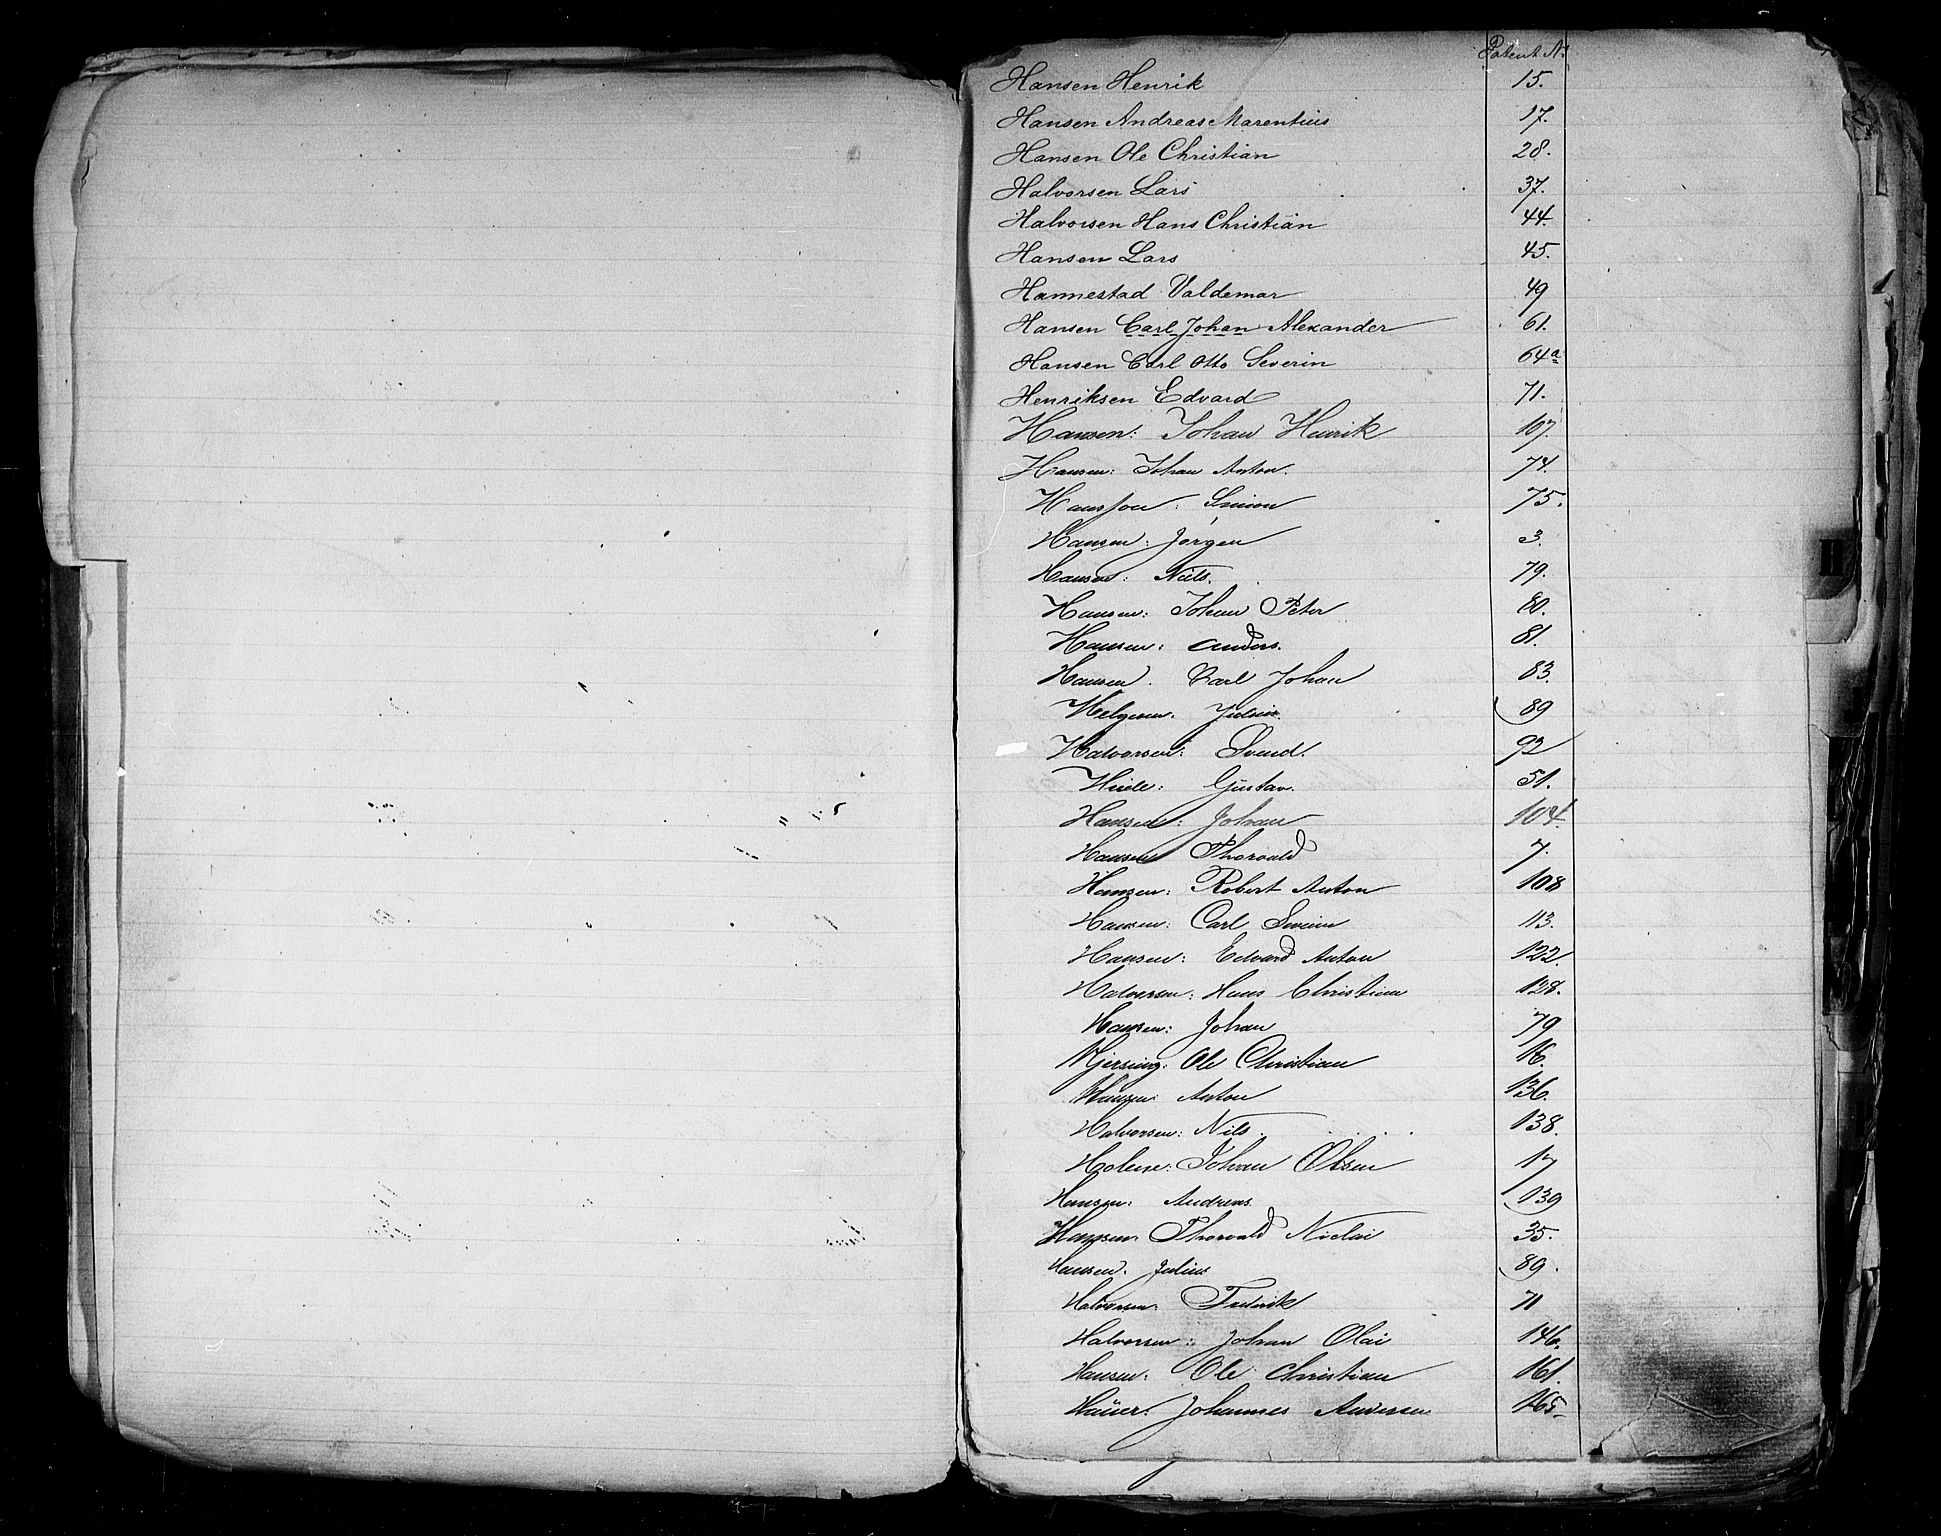 Patent No
Hansen Henrik 15.
Hansen Andreas Marentius 17.
Hansen Ole Christian 28.
Halvorsen Lars 37.
Halvorsen Hans Christian 44.
Hansen Lars 45.
Hannestad Valdemar 49
Hansen Carl Johan Alexander 61.
Hansen Carl Otto Severin 64a
Henriksen Edvard 71.
Hansen: Johan Henrik 107.
Hansen: Johan Anton. 74.
Hansson: Simon 75.
Hansen: Jørgen 3.
Hansen: Niels. 79.
Hansen: Johan Peter 80.
Hansen: Anders. 81.
Hansen. Carl Johan 83.
Helgesen. Julius. 89
Halvorsen: Svend. 92
Hiele: Gustav. 51.
Hansen: Johan 104.
Hansen Thorvald 7.
Hansen: Robert Anton 108
Hansen: Carl 113.
Hansen: Edvard Anton 122.
Halvorsen: Hans Christian 128.
Hansen: Johan 79
Hjersing: Ole Christian 16.
Hansen: Anton 136.
Halvorsen: Nils. 138.
Holene: Johan Olsen 17
Hansen: Andreas. 139
Hansen. Thorvald Nicolai 35.
Hansen. Julius 89.
Halvorsen. Fredrik 71
Halvorsen: Johan Olai 146.
Hansen: Ole Christian 161.
Haüer: Johannes Andersen 165
H